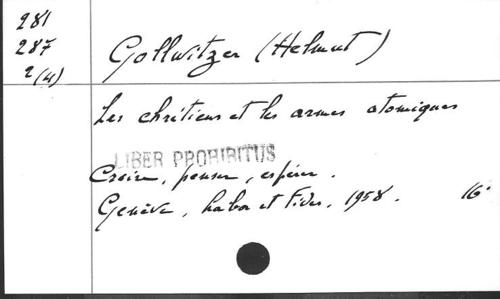 281
287
2(4)
Gollwitzer (Helmut)
Les chrétiens et les armes atomiques
LIBER PROHIBITUS
Croire, penser, espérer.
Genève, Labor et Fides, 1958. 16°